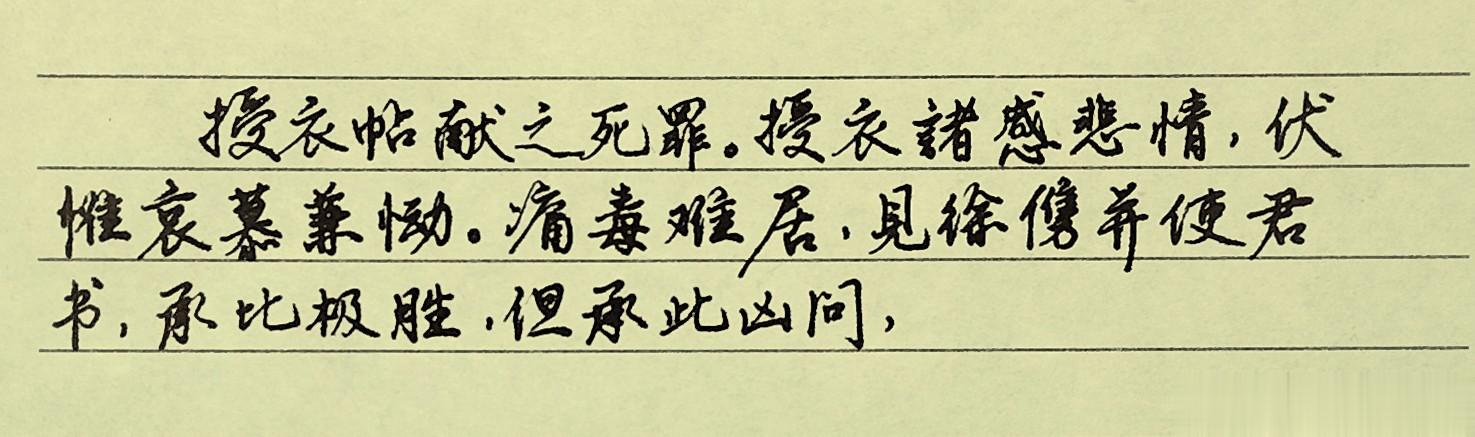 授衣帖献之死罪。授衣諸感悲情，伏
惟哀慕兼恸。痛毒难居，見徐儁并使君
书，承比极胜，但承此凶问，